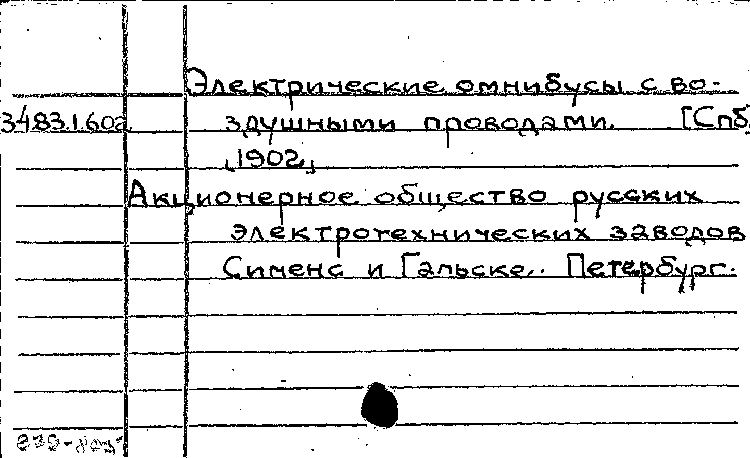 Электрические омнибусы с во-
34.83.1.602 здушными проводами. [Спб.
1902]
Акционерное общество русских
электротехнических заводов
Сименс и Гальске. Петербург.